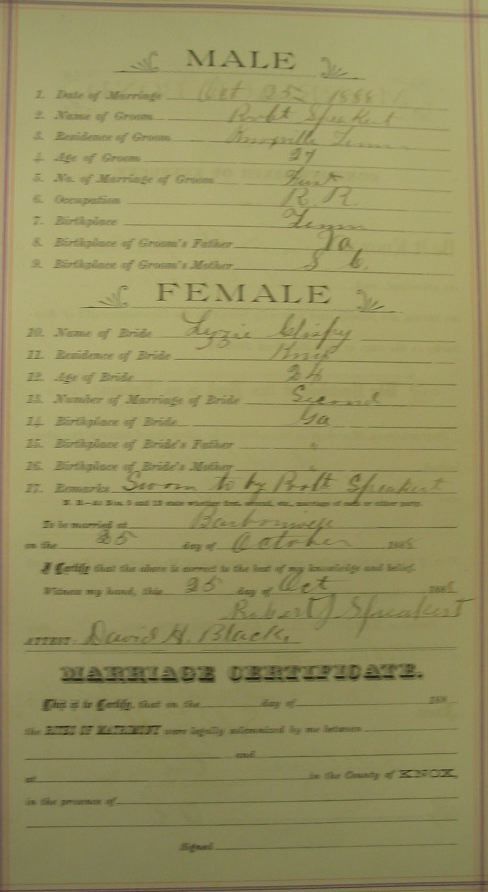 MALE
1. Date of Marriage Oct 25 1888
2. Name of Groom Robt Speakert
3. Residence of Groom Knoxville Tenn
4. Age of Groom 27
5. No. of Marriage of Groom First
6. Occupation R. R.
7. Birthplace Tenn
8. Birthplace of Groom's Father Va
9. Birthplace of Groom's Mother S C.
FEMALE
10. Name of Bride Lizzie
11. Residence of Bride Knox
12. Age of Bride
13. Number of Marriage of Bride Second
14. Birthplace of Bride Ga
15. Birthplace of Bride's Father "
16. Birthplace of Bride's Mother "
17. Remarks Sworn to by Robt Speakert
N. B.—At Nos. 5 and 13 state whether first, second, etc., marriage of each or either party.
To be married at
on the 25 day of October 1888
I Certify that the above is correct to the best of my knowledge and belief.
Witness my hand, this 25 day of Oct 1888
Robert J Speakert
ATTEST: David H. Black.
MARRIAGE CERTIFICATE.
This is to Certify, that on the day of 188
the RITES OF MATRIMONY were legally solemnized by me between
and
at in the County of KNOX,
in the presence of
Signed